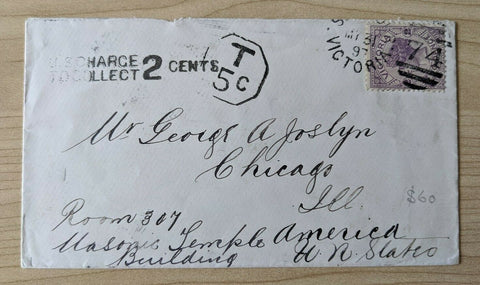 U.S. CHARGE
TO COLLECT 2 CENTS
T
5c
MY 3
97
VICTORIA
Mr George A Joslyn
Chicago
Ill.
Room 307
America
Masonic Temple
Building
U. N. States
60